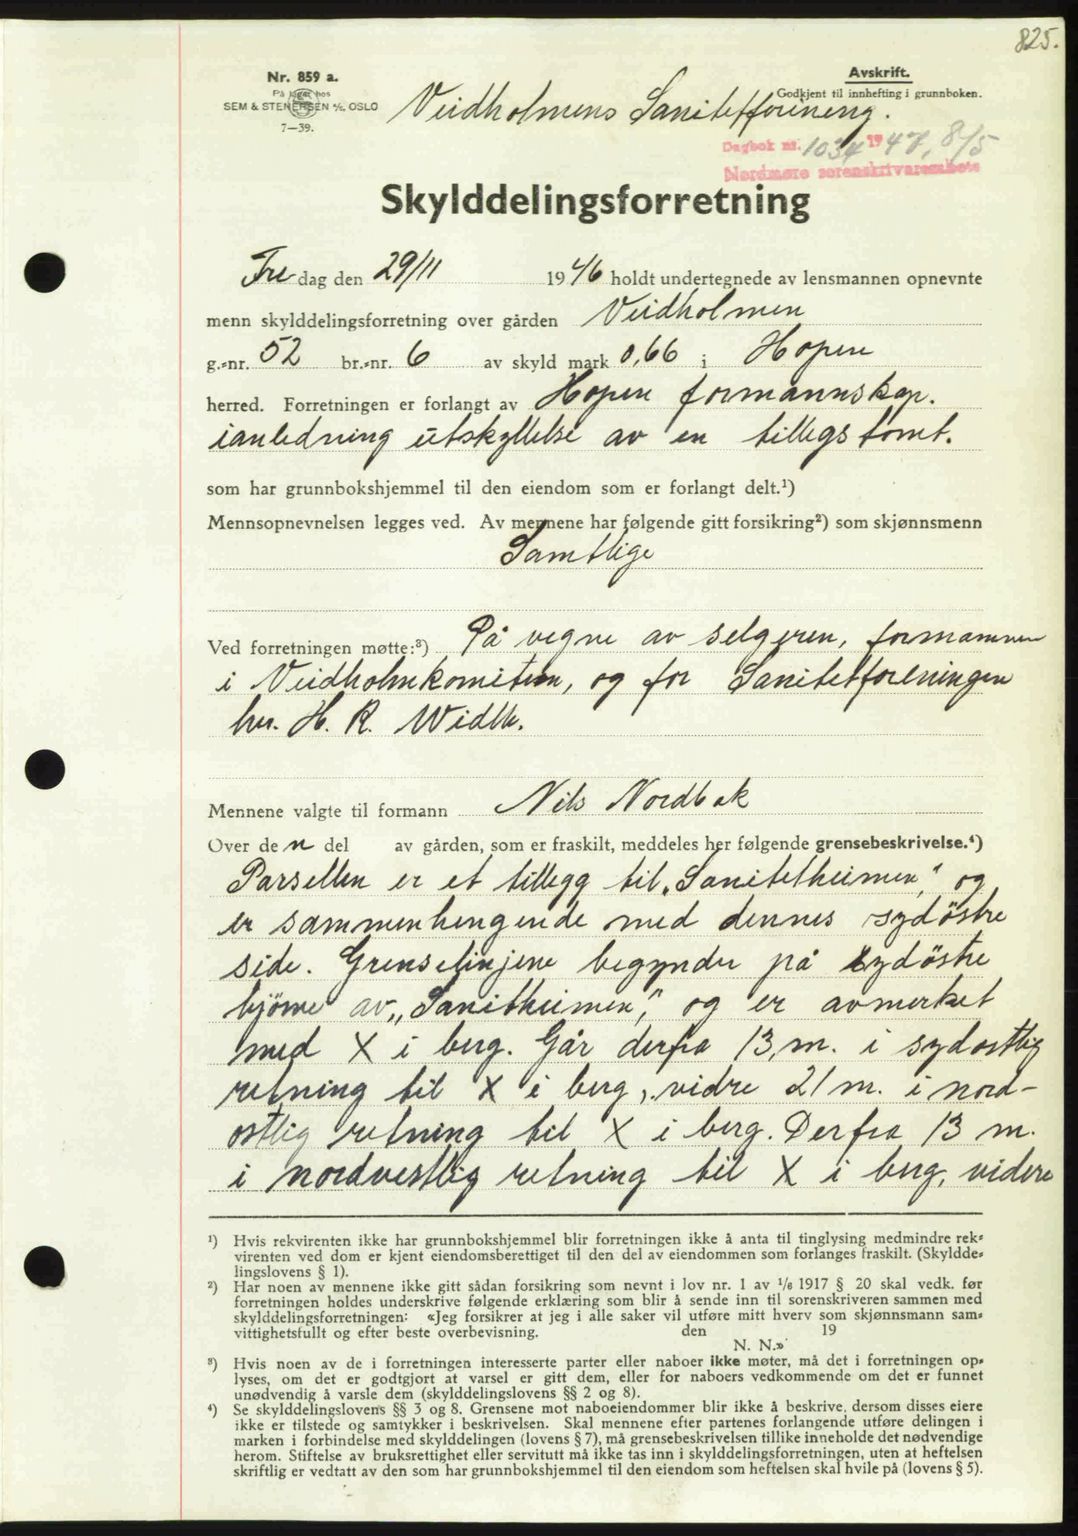 825.
Nr. 859 a.
På lager hos
SEM & STENERSEN A/S, OSLO
7—39.
Avskrift.
Godkjent til innhefting i grunnboken.
Veidholmens Sanitetforening.
Dagbok nr. 1034 1947, 8/5
Nordmøre sorenskriverembete
Skylddelingsforretning
Fre dag den 29/11 1946 holdt undertegnede av lensmannen opnevnte
menn skylddelingsforretning over gården Veidholmen
g.-nr. 52 br.-nr. 6 av skyld mark 0,66 i Hopen
herred. Forretningen er forlangt av Hopen formannskap.
ianledning utskyllelse av en tillegstomt.
som har grunnbokshjemmel til den eiendom som er forlangt delt.¹)
Mennsopnevnelsen legges ved. Av mennene har følgende gitt forsikring²) som skjønnsmenn
Samtlige
Ved forretningen møtte:³) På vegne av selgeren, formannen
i Veidholmkomiteen, og for Sanitetforeningen
hr. H. R. Width.
Mennene valgte til formann Nils Nordbak
Over den del av gården, som er fraskilt, meddeles her følgende grensebeskrivelse.⁴)
Parsellen er et tillegg til „Sanitetheimen,“ og
er sammenhengende med dennes sydöstre
side. Grenselinjene begynder på sydöstre
hjörne av „Sanitheimen“, og er avmerket
med X i berg. Går derfra 13, m. i sydostlig
retning til X i berg, vidre 21 m. i nord-
ostlig retning til X i berg. Derfra 13 m.
i nordvestlig retning til X i berg, videre
¹) Hvis rekvirenten ikke har grunnbokshjemmel blir forretningen ikke å anta til tinglysing medmindre rek-
virenten ved dom er kjent eiendomsberettiget til den del av eiendommen som forlanges fraskilt. (Skyldde-
lingslovens § 1).
²) Har noen av mennene ikke gitt sådan forsikring som nevnt i lov nr. 1 av 1/6 1917 § 20 skal vedk. før
forretningen holdes underskrive følgende erklæring som blir å sende inn til sorenskriveren sammen med
skylddelingsforretningen: «Jeg forsikrer at jeg i alle saker vil utføre mitt hverv som skjønnsmann sam-
vittighetsfullt og efter beste overbevisning. den 19
N. N.»
³) Hvis noen av de i forretningen interesserte parter eller naboer ikke møter, må det i forretningen op-
lyses, om det er godtgjort at varsel er gitt dem, eller for naboers vedkommende om det er funnet
unødvendig å varsle dem (skylddelingslovens §§ 2 og 8).
⁴) Se skylddelingslovens §§ 3 og 8. Grensene mot naboeiendommer blir ikke å beskrive, dersom disses eiere
ikke er tilstede og samtykker i beskrivelsen. Skal mennene efter partenes forlangende utføre delingen i
marken i forbindelse med skylddelingen (lovens § 7), må grensebeskrivelsen tillike inneholde det nødvendige
herom. Stiftelse av bruksrettighet eller servitutt må ikke tas inn i skylddelingsforretningen, uten at heftelsen
skriftlig er vedtatt av den som har grunnbokshjemmel til den eiendom som heftelsen skal hvile på (lovens § 5).